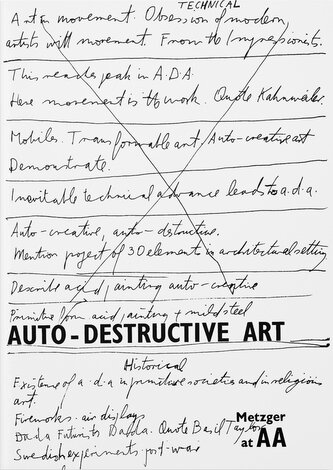 TECHNICAL
Art in movement. Obsession of modern
artists with movement. From the Impressionists.
This reaches peak in A.D.A.
Here movement is the work. Quote Kahnweiler
Mobiles. Transformable art. Auto-creative art
Demonstrate.
Inevitable technical advance leads to a.d.a.
Auto-creative, auto-destructive.
Mention project of 30 element in architectural setting
Describe acid painting auto-creative
Primitive form acid painting + mild steel
AUTO-DESTRUCTIVE ART
Historical
Existence of a.d.a in primitive societies and in religious
art.
Fireworks. air displays
Dada Futurists Dada. Quote Basil Taylor
Swedish experiments post-war
Metzger
at AA